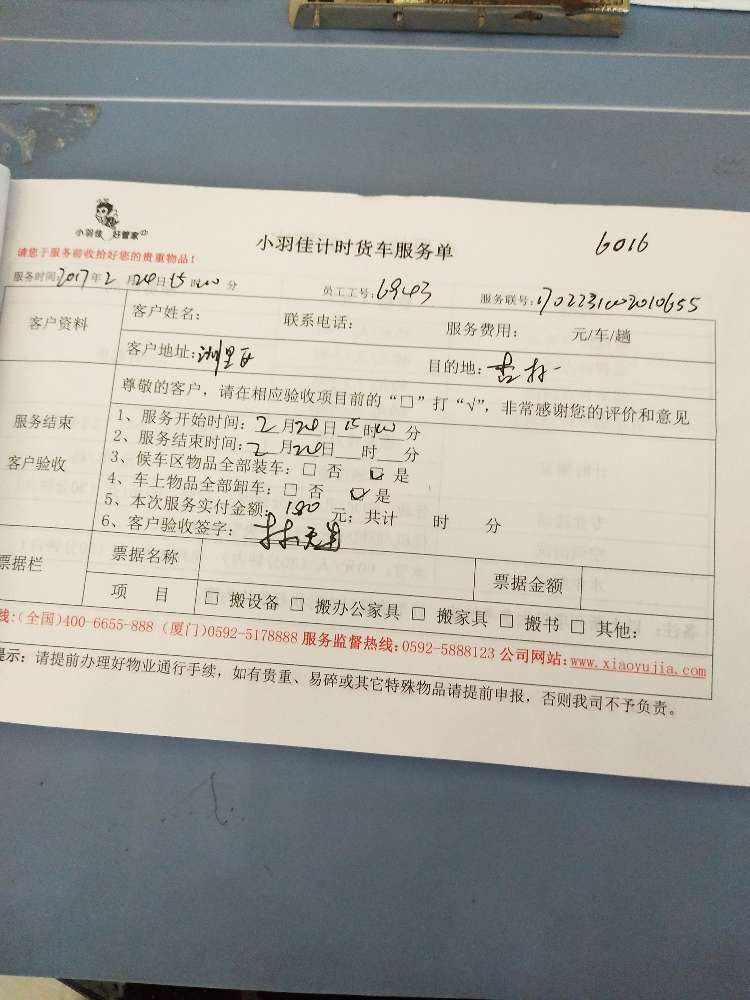 小羽佳 好管家
小羽佳计时货车服务单
6016
请您于服务前收拾好您的贵重物品!
服务时间:2017年2月20日15时00分
员工工号:6943
服务联号:1702231002010655
客户资料
客户姓名: 联系电话: 服务费用: 元/车/趟
客户地址: 目的地:
尊敬的客户,请在相应验收项目前的“□”打“√”,非常感谢您的评价和意见
服务结束
客户验收
1、服务开始时间:2月20日15时00分
2、服务结束时间:2月20日 时 分
3、候车区物品全部装车:□ 否 ☑ 是
4、车上物品全部卸车:□ 否 ☑ 是
5、本次服务实付金额:180 元;共计 时 分
6、客户验收签字:
票据栏
票据名称 票据金额
项 目 □ 搬设备 □ 搬办公家具 □ 搬家具 □ 搬书 □ 其他:
线:(全国)400-6655-888 (厦门)0592-5178888 服务监督热线:0592-5888123 公司网站:www.xiaoyujia.com
提示:请提前办理好物业通行手续,如有贵重、易碎或其它特殊物品请提前申报,否则我司不予负责。